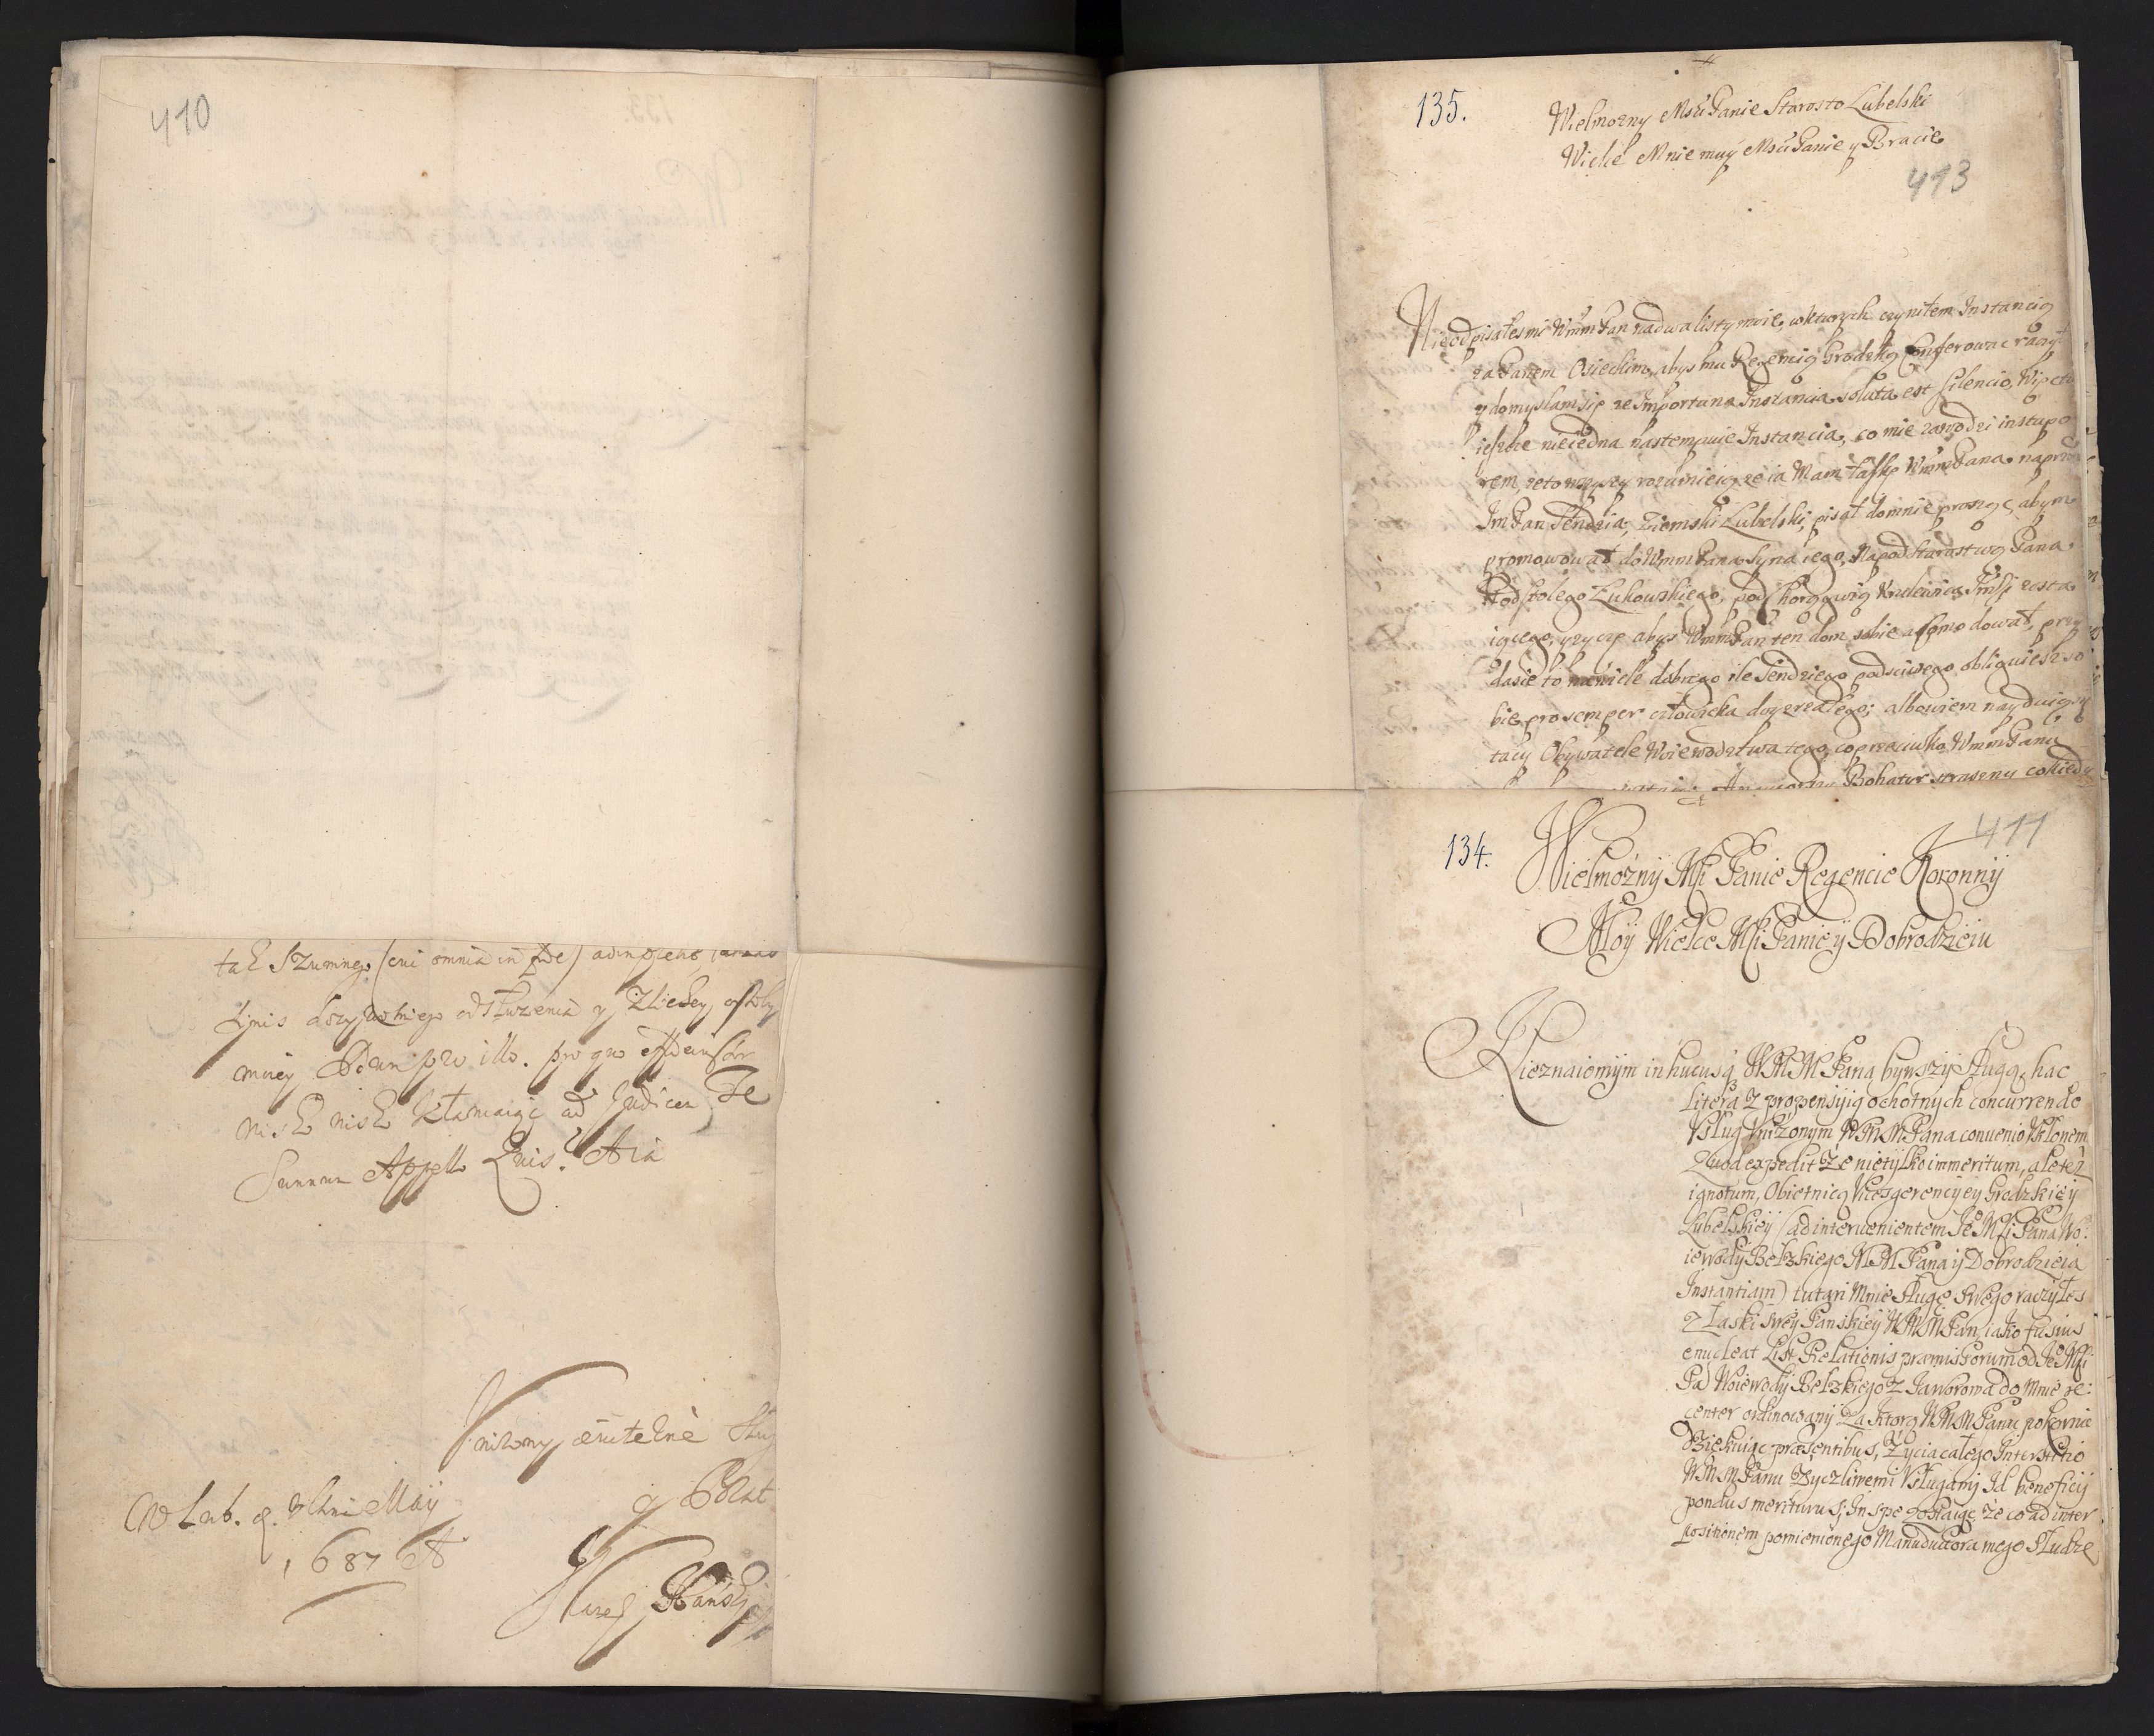 410
tak Szumnego (cui omnia in
mniey Deum pro illo. pro quo
nisko nisko ad Judicem Te
Summum Appello Quis? Aia
Unizony Slug
y Brat
W Lub. d. Maij
1687 A
135.
Wielmozny Msci Panie Starosto Lubelski
Wielce Mnie muy Msci Panie y Bracie
413
Nieodpisałes mi Wmm Pan na dwa listy moie, wktorych czyniłem Instancią
za Panem Osieckim, abys mu Regencią Grodzką Conferowac raczył
y domyslam się ze Importuna Instancia soluta est silencio, Więc tu
ieszcze nieiedna nastempuie Instancia, co mie zawodzi in stupo
rem, ze to wszyscy rozumieią ze ia Mam łaskę Wmm Pana. naprzod
Im Pan Sendzia Ziemski Lubelski, pisał do mnie prosząc, abym
promowował do Wmm Pana Syna iego, Na pod Starostwo Pana
Podstolego Łukowskiego, pod Chorągwią Krolewica Imsci zosta
iącego, yzyczę abys Wmm Pan ten dom sobie akomodował, przy
da sie to na wiele dobrego ile Sendziego podsciwego obliguiesz so
bie pro semper człowieka dogrzałego; albowiem nayduią się
tacy Obywatele Woiewodztwa tego, co przeciwko Wmm Panu
Bohatur straszny co kiedy
134.
411
Wielmozny Msci Panie Regencie Koronny
Moy Wielce Msci Panie y Dobrodzieiu
Nieznaiomym in hucusq WMM Pana bywszy Sługą, hac
litera z propensyią ochotnych concurrendo
Usług Unizonym WMM Pana convenio Ukłonem
Quod expedit Ze nietylko immeritum, ale tez
ignotum, Obietnicą Vicesgerencyey Grodzkiey
Lubelskiey (ad intervenientem Je Msci Pana Wo:
iewody Bełzkiego MM Pana y Dobrodzieia
Instantiam) tutari Mnie Sługę Swego raczyłes
z Łaski swey Panskiey WMM Pan, iako fusius
enucleat List Relationis præmissorum od Je Msci
Pa Woiewody Bełzkiego z Jaworowa do Mnie re:
center ordinowany Za Ktorą WMM Panu pokornie
Dziękuiąc præsentibus, Zycia całego Interstitio
WMM Panu Zyczliwemi Usługami Id beneficij
pondus meriturus; In spe zostaiąc Ze co ad inter
positionem pomienionego Manuductora mego Słudze